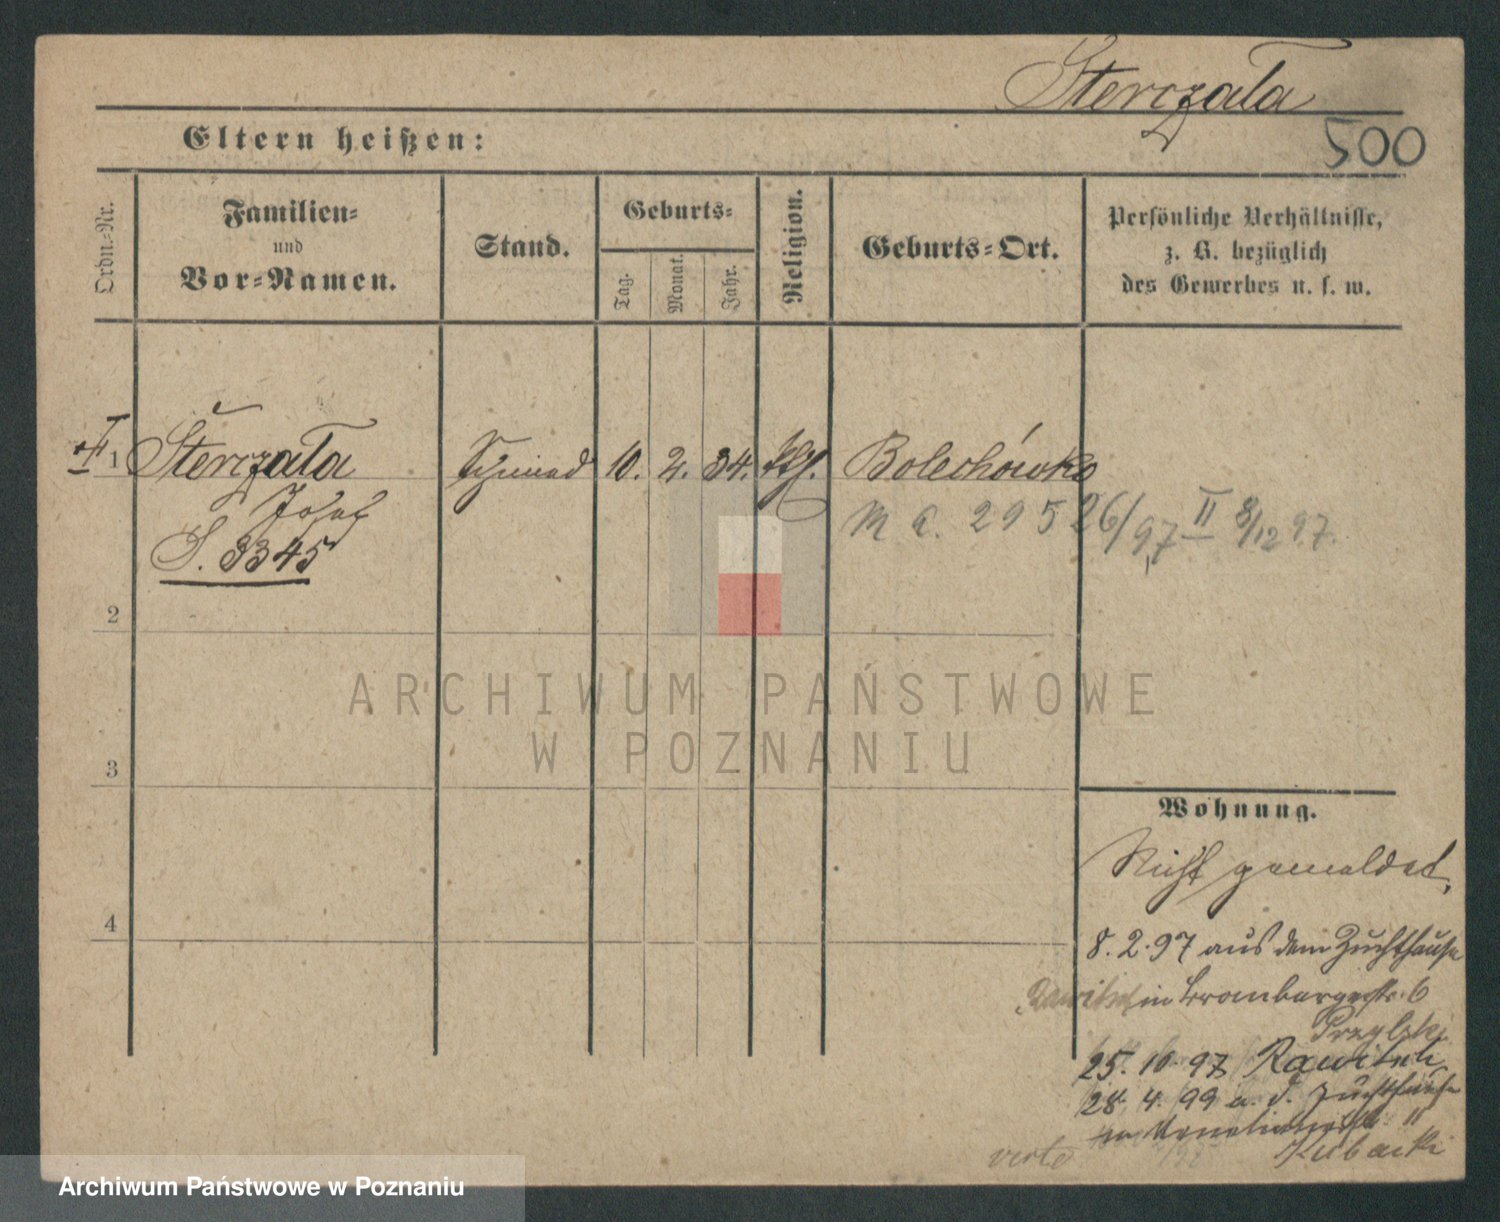 Sterczała
500
Eltern heißen:
Ordn.-Nr.
Familien-
und
Vor-Namen.
Stand.
Geburts-
Tag.
Monat.
Jahr.
Religion.
Geburts-Ort.
Persönliche Verhältnisse,
z. B. bezüglich
des Gewerbes u. s. w.
1 Sterczała 10. 2. 34. Bolechówko
Josef
S. 3345
29526/97 II 8/12 97.
2
3
4
ARCHIWUM PAŃSTWOWE
W POZNANIU
Wohnung.
Nicht gemeldet,
8. 2. 97 aus dem Zuchthause
Rawitsch in Brombergerstr. 6
Przybylski
25. 10. 97 Rawitsch
28. 4. 99 a. d. Zuchthause
Kubacki
verte
Archiwum Państwowe w Poznaniu